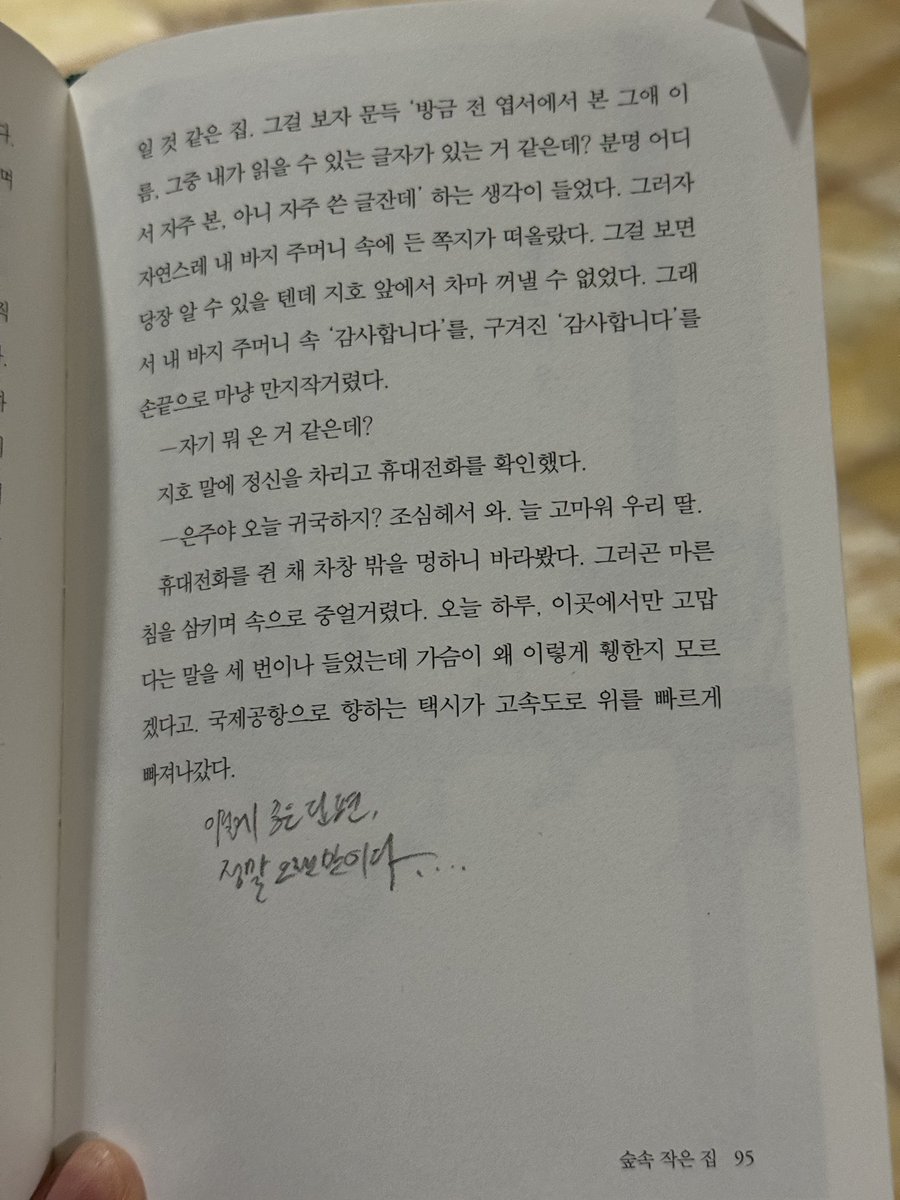 일 것 같은 집. 그걸 보자 문득 ‘방금 전 엽서에서 본 그애 이
름, 그중 내가 읽을 수 있는 글자가 있는 거 같은데? 분명 어디
서 자주 본, 아니 자주 쓴 글잔데’ 하는 생각이 들었다. 그러자
자연스레 내 바지 주머니 속에 든 쪽지가 떠올랐다. 그걸 보면
당장 알 수 있을 텐데 지호 앞에서 차마 꺼낼 수 없었다. 그래
서 내 바지 주머니 속 ‘감사합니다’를, 구겨진 ‘감사합니다’를
손끝으로 마냥 만지작거렸다.
—자기 뭐 온 거 같은데?
지호 말에 정신을 차리고 휴대전화를 확인했다.
—은주야 오늘 귀국하지? 조심헤서 와. 늘 고마워 우리 딸.
휴대전화를 쥔 채 차창 밖을 멍하니 바라봤다. 그러곤 마른
침을 삼키며 속으로 중얼거렸다. 오늘 하루, 이곳에서만 고맙
다는 말을 세 번이나 들었는데 가슴이 왜 이렇게 휑한지 모르
겠다고. 국제공항으로 향하는 택시가 고속도로 위를 빠르게
빠져나갔다.
이렇게 좋은 단편,
정말 오랜만이다....
숲속 작은 집 95
다.
먹
직